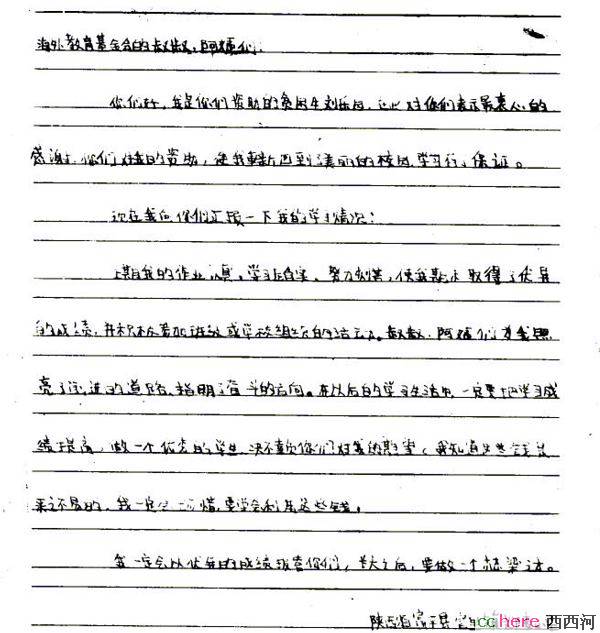 海外教育基金会的叔叔、阿姨们:
你们好,我是你们资助的贫困生刘乐后,在此对你们表示最衷心的
感谢,你们对我的资助,使我重新回到美丽的校园,学习有了保证。
现在我向你们汇报一下我的学习情况:
上期我的作业认真,学习踏实、努力刻苦,使我期末取得了优异
的成绩,并积极参加班级或学校组织的活动。叔叔、阿姨们为我照
亮了前进的道路,指明了奋斗的方向。在以后的学习生活中,一定要把学习成
绩提高,做一个优秀的学生,决不辜负你们对我的期望,我知道这些钱
来之不易的,我一定会珍惜,要学会利用这些钱。
我一定会以优异的成绩报答你们,长大之后,要做一个栋梁才。
陕西省富平县
cchere 西西河